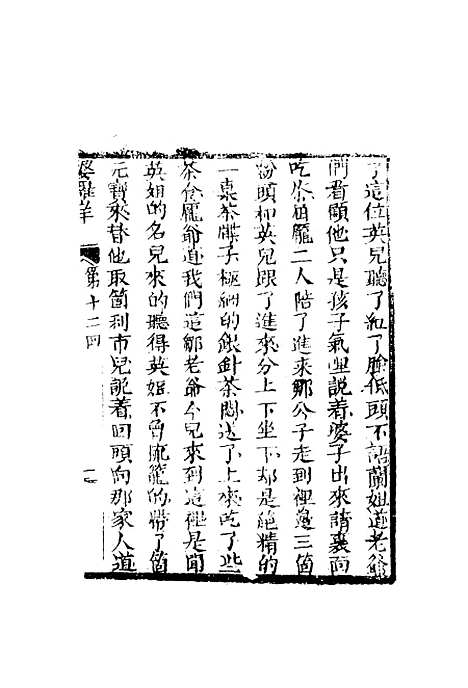 了這位英兒聽了紅了臉低頭不語蘭姐道老爺
們看顧他只是孩子氣哩說着婆子出來請裏面
吃茶苗龐二人陪了進來鄒公子走到裡邊三箇
粉頭和英兒跟了進來分上下坐下却是絕精的
一桌茶碟子極細的銀針茶閙送了上來吃了些
茶食龐爺道我們這鄒老爺今兒來到這裡是聞
英姐的名兒來的聽得英姐不曾流籠的帶了箇
元寶來替他取箇利市兒說着回頭向那家人道
第十二回